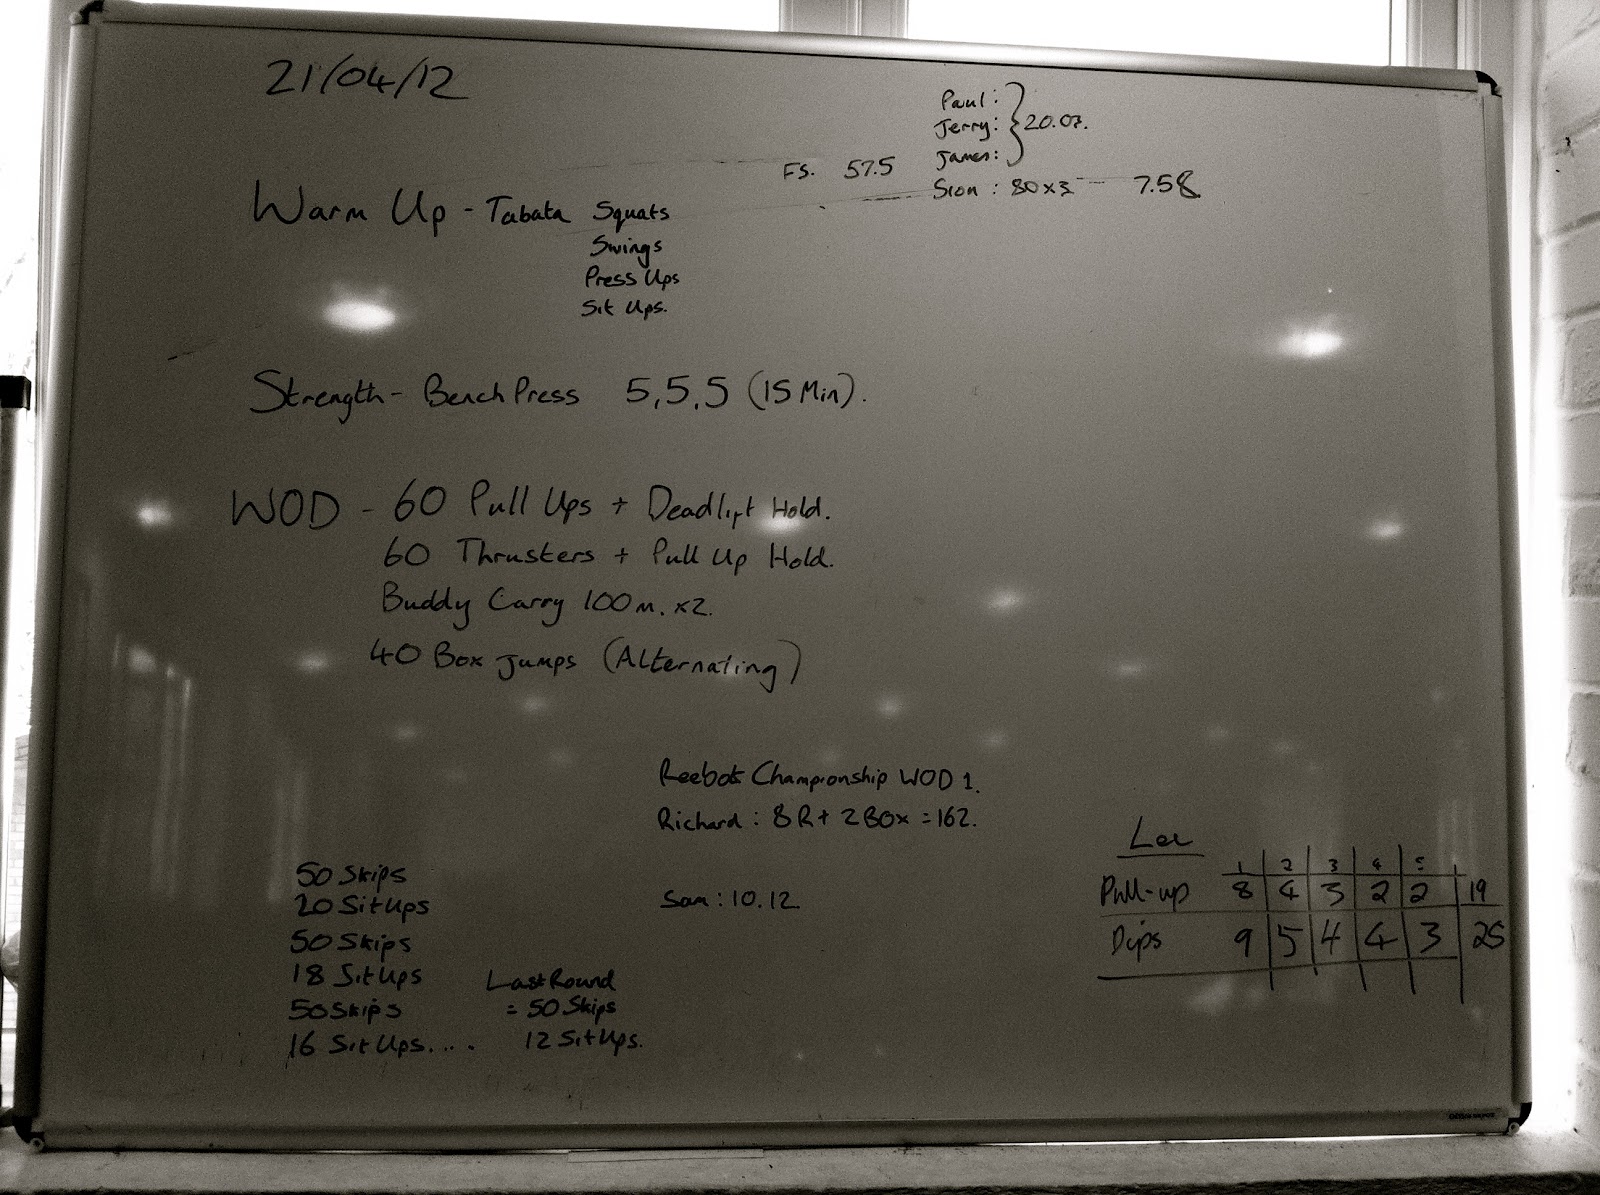 21/04/12
Paul:
Jerry: } 20.07.
James:
FS. 57.5
Sion : 80x3 - 7.58
Warm Up - Tabata Squats
Swings
Press Ups
Sit Ups.
Strength - Bench Press 5,5,5 (15 Min).
WOD - 60 Pull Ups + Deadlift Hold.
60 Thrusters + Pull Up Hold.
Buddy Carry 100m. x2.
40 Box Jumps (Alternating)
Reebok Championship WOD 1.
Richard : 8R + 2 Box = 162.
Sam : 10.12
50 Skips
20 Sit Ups
50 Skips
18 Sit Ups
50 Skips
16 Sit Ups....
Last Round
= 50 Skips
12 Sit Ups.
1 2 3 4 5
Pull-up 8 4 3 2 2 19
Dips 9 5 4 4 3 25